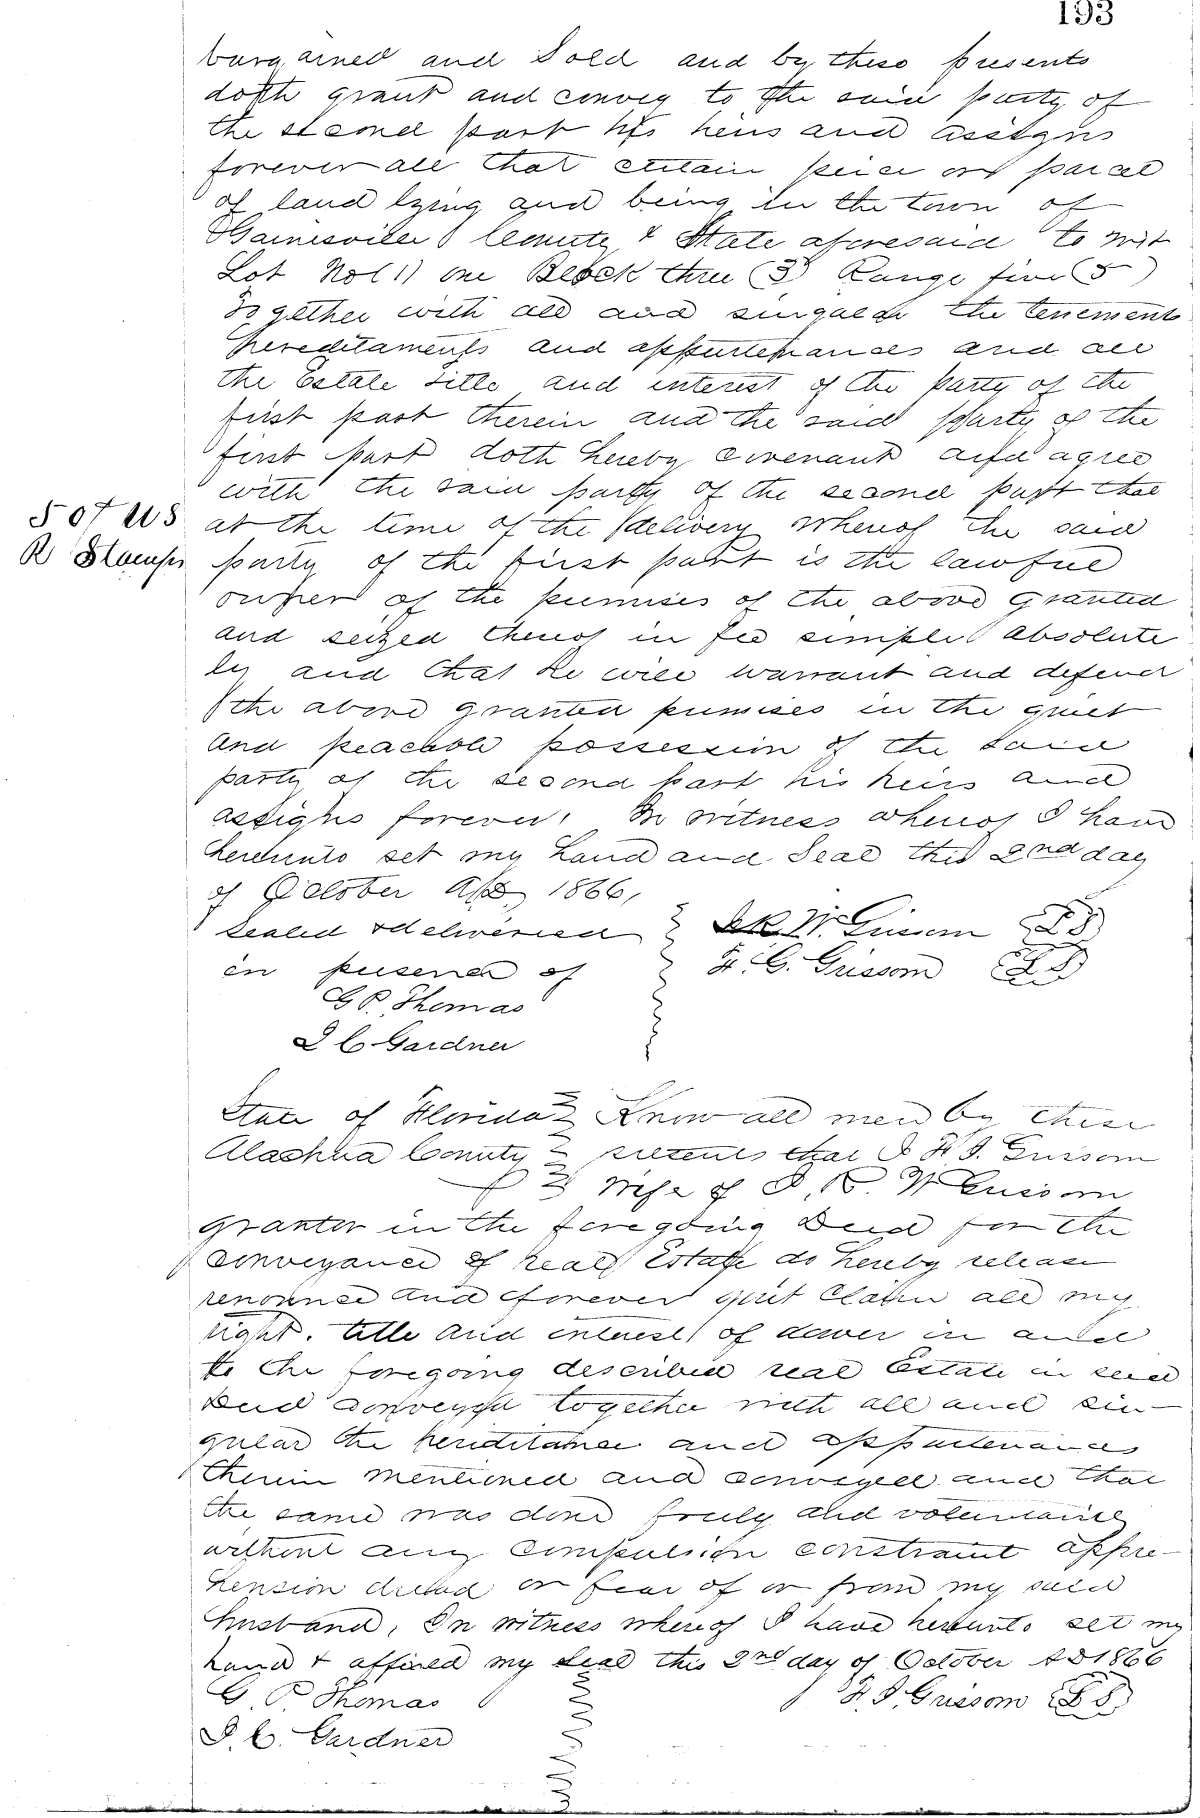 193
bargained and Sold and by these presents
doth grant and convey to the said party of
the second part his heirs and assigns
forever all that certain peice or parcel
of land lying and being in the town of
Gainesville County & State aforesaid to wit
Lot No (1) one Block three (3) Range five (5)
Together with all and singular the tenements
hereditaments and appurtenances and all
the Estate title and interest of the party of the
first part therein and the said party of the
first part doth hereby covenant and agree
with the said party of the second part that
at the time of the delivery whereof the said
party of the first part is the lawful
owner of the premises of the above granted
and seized thereof in fee simple absolute
ly and that he will warrant and defend
the above granted premises in the quiet
and peacable possession of the said
party of the second part his heirs and
assigns forever, In witness whereof I have
hereunto set my hand and Seal this 2nd day
of October AD, 1866,
50 US
R Stamps
Sealed & delivered
in presence of
G P. Thomas
I C Gardner
W. Grissom LS
Grissom LS
State of Florida Know all men by these
Alachua County presents that I Grissom
Wife of I. R. W Grissom
grantor in the foregoing Deed for the
conveyance of real Estate do hereby release
renounce and forever quit Claim all my
right. title and interest of dower in and
to the foregoing described real Estate in said
Deed conveyed together with all and sin-
gular the heriditance and appurtenances
therein mentioned and conveyed and that
the same was done freely and voluntarily
without any compulsion constraint appre-
hension dread or fear of or from my said
husband, In witness whereof I have hereunto set my
hand & affixed my Seal this 2nd day of October AD 1866
G. P. Thomas
I. C. Gardner
Grissom LS